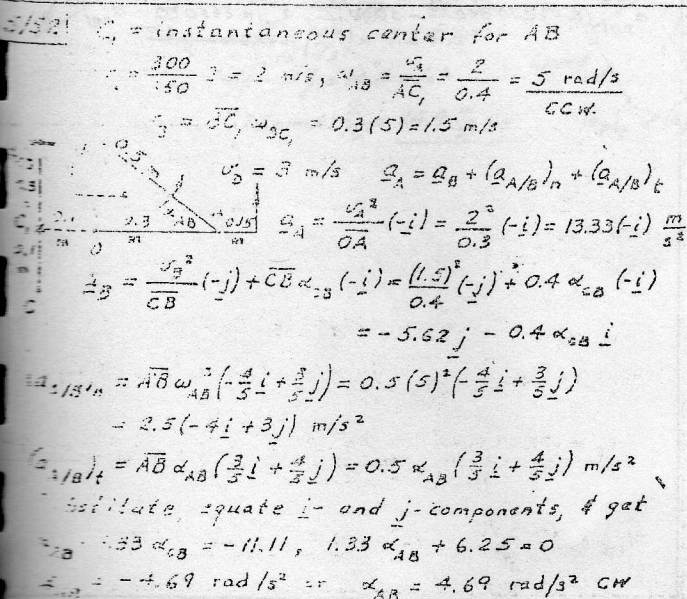 5/58
C₁ = instantaneous center for AB
300/150 3 = 2 m/s, ω_AB = v_A/AC₁ = 2/0.4 = 5 rad/s CCW.
BC₁ ω_BC₁ = 0.3(5) = 1.5 m/s
0.5 m
v_D = 3 m/s a_A = a_B + (a_A/B)n + (a_A/B)t
α_AB A 0.15 m
2.3 m
O
a_A = v_A²/OA (-i) = 2²/0.3 (-i) = 13.33(-i) m/s²
v_B²/CB (-j) + CB α_CB (-i) = (1.5)²/0.4 (-j) + 0.4 α_CB (-i)
C
= -5.62 j - 0.4 α_CB i
= AB ω_AB² (-4/5 i + 3/5 j) = 0.5(5)² (-4/5 i + 3/5 j)
= 2.5(-4i + 3j) m/s²
(a_A/B)t = AB α_AB (3/5 i + 4/5 j) = 0.5 α_AB (3/5 i + 4/5 j) m/s²
equate i- and j-components, & get
.33 α_CB = -11.11, 1.33 α_AB + 6.25 = 0
= -4.69 rad/s² or α_AB = 4.69 rad/s² CW